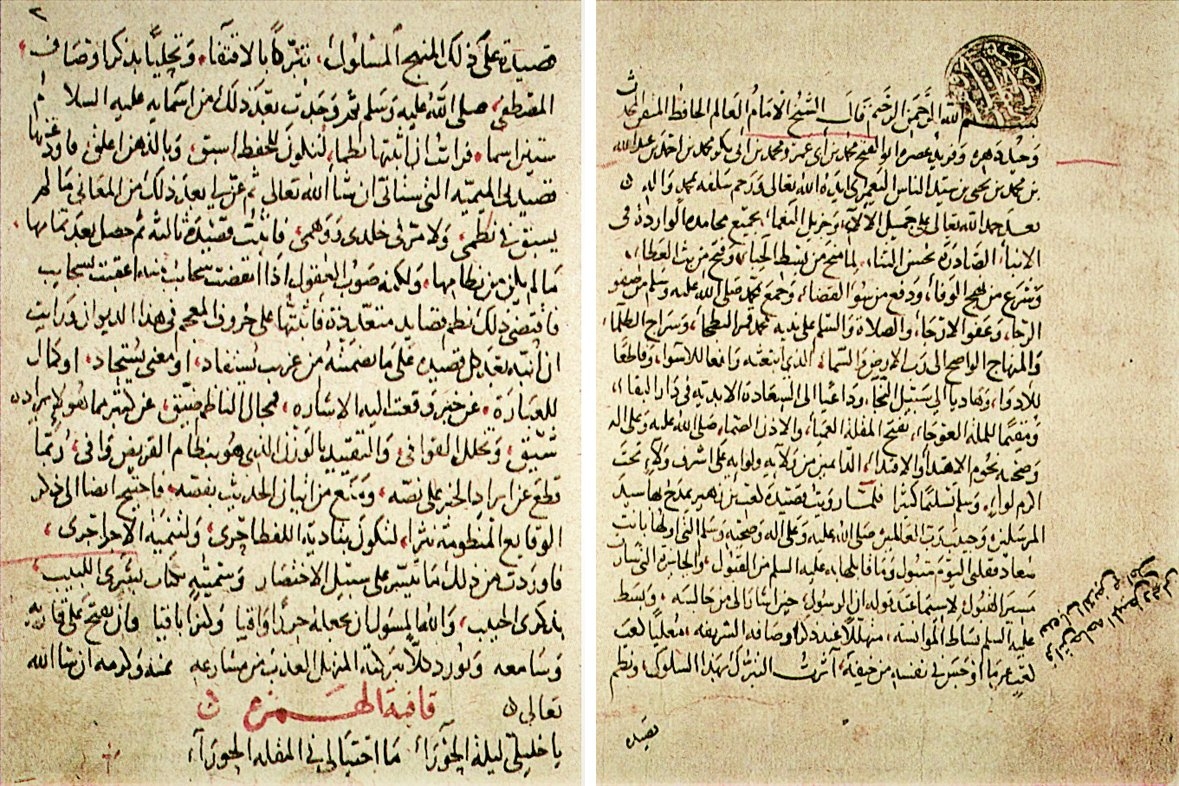 بسم الله الرحمن الرحيم قال الشيخ الامام العالم الحافظ المتقن المحدث
وحيد دهره وفريد عصره ابو الفتح محمد بن ابى عمرو محمد بن ابى بكر محمد بن احمد بن عبد الله
بن محمد بن يحيى بن سيد الناس اليعمرى ايده الله تعالى ورحم سلفه بمحمد واله
بعد حمد الله تعالى على جميل الالاء وجزيل النعماء بجميع محامده الواردة فى
الانباء الصادرة بحسن الثناء لما منح من بسط الحباء وفتح من العطاء
وشرع من نهج الوفاء ودفع من سوء القضاء وجمع بمحمد صلى الله عليه وسلم من صفو
الرجاء وعفو الارجاء والصلاة والسلم على نبيه محمد قمر البطحاء وسراج الظلماء
والمنهاج الواضح الى رب الارض والسماء الذى ابتعثه دافعا للاسواء وقاطعا
للادواء وهاديا الى سبيل النجاء وداعيا الى السعادة الابديه فى دار البقاء
ومقيما للملة العوجاء بفتح المقلة العمياء والاذن الصماء صلى الله عليه وعلى اله
وصحبه نجوم الاهتداء والاقتداء الدايمين من ولايه ولوايه على اشرف ولاء وتحت
اكرم لواء وسلم تسليما كثيرا فلما رويت قصيدة كعب بن زهير يمدح بها سيد
المرسلين وحبيب رب العالمين صلى الله عليه وعلى اله وصحبه وسلم التى اولها بانت
سعاد فقلبى اليوم متبول وما قابلها به عليه السلم من القبول والجايزة
لاسيما عند قوله ان الرسول حين اشار الى من جالسه وبسط
عليه السلم بساط الموانسة متهللا عند ذكر اوصافه الشريفه
اوجس فى نفسه من خيفة اثرت التبرك بهذا السلوك ونظم
قصيده
قصيدة على ذلك المنهج المسلوك تبركا بالاقتفاء وتحليا بذكر اوصاف
المصطفى صلى الله عليه وسلم ثم وجدت بعد ذلك من اسمايه عليه السلام
ستين اسما فرايت ان اثبتها نظما لتكون للحفظ اسبق وبالذهن اعلق فاودعتها
قصيدتى الميميه التى ستاتى ان شاء الله تعالى ثم عن لى بعد ذلك من المعانى ما لم
يسبق فى نظمى ولا مر فى خلدى ووهمى فاثبت قصيدة ثالثه ثم حصل بعد تمامها
ما لم يكن من نظامها ولكنه صوب العقول اذا انقضت سحائب منه اعقبت بسحايب
فاقتضى ذلك نظم قصايد متعددة فاثبتها على حروف المعجم فى هذا الديوان ورايت
ان اثبته بعد كل قصيده على ما تضمنته من غريب يستفاد او معنى يستجاد او كمال
للعبارة عن خبر وقعت اليه الاشاره فمجال الناظم ضيق عن كثير مما هو لايراده
شيق وتخلل القوافى والتقييد بالوزن الذى هو بنظام القريض وافى ربما
قطع عن ايراد الخبر على نصه ومنع من اتيان الحديث بفصه فاحتيج ايضا الى ذكر
الوقايع المنظومة نثرا لتكون بتادية اللفظ احرى ولتنمية الاجر اجرى
فاوردت من ذلك ما تيسر على سبيل الاختصار وسميته كتاب بشرى اللبيب
بذكرى الحبيب والله المسول ان يجعله حرزا واقيا وكنزا باقيا وان يفتح على قاريه
وسامعه ويورد كلا ببركته المنهل العذب من مشارعه بمنه وكرمه ان شا الله
تعالى
قافية الهمزة
يا خليلى ليلة الجوزاء ما احتيالى فى المقله الحوراء